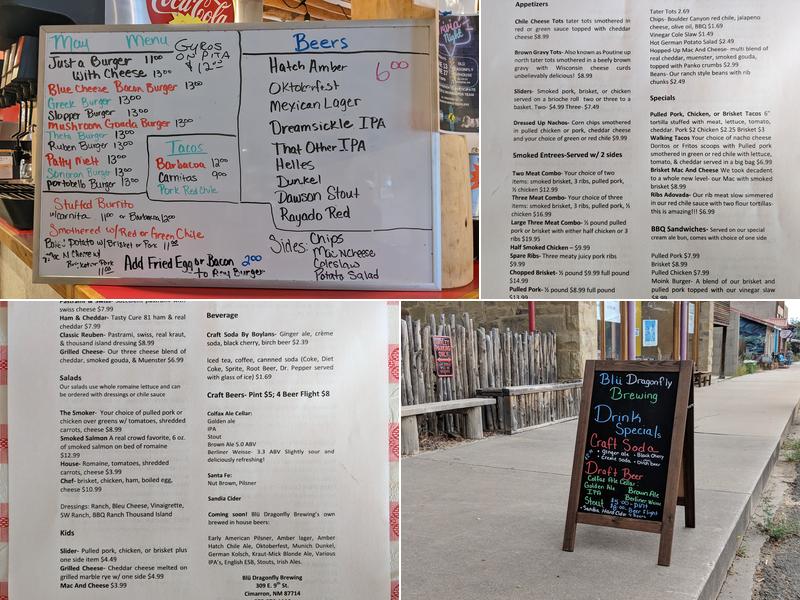 Coca-Cola
May Menu
GYROS
ON PITA
$12.00
Just a Burger 11.00
With Cheese 13.00
Blue Cheese Bacon Burger 13.00
Greek Burger 13.00
Slopper Burger 13.00
Mushroom Gouda Burger 13.00
Theta Burger 13.00
Ruben Burger 13.00
Patty Melt 13.00
Sonoran Burger 13.00
portobello Burger 13.00
Tacos
Barbacoa 12.00
Carnitas 9.00
Pork Red Chile
Stuffed Burrito
w/carnita 11.00 or Barbacoa 12.00
Smothered w/Red or Green Chile
Potato w/ Brisket or Pork 11.00
Mac N Cheese w/
Brisket or Pork 11.00
Add Fried Egg or Bacon 2.00
to Any Burger
Beers
6.00
Hatch Amber
Oktoberfest
Mexican Lager
Dreamsickle IPA
That Other IPA
Helles
Dunkel
Dawson Stout
Rayado Red
Sides: Chips
Mac N Cheese
Coleslaw
Potato Salad
Trivia
Night
Appetizers
Chile Cheese Tots tater tots smothered in
red or green sauce topped with cheddar
cheese $8.99
Brown Gravy Tots- Also known as Poutine up
north tater tots smothered in a beefy brown
gravy with Wisconsin cheese curds
unbelievably delicious! $8.99
Sliders- Smoked pork, brisket, or chicken
served on a brioche roll two or three to a
basket. Two- $4.99 Three- $7.49
Dressed Up Nachos- Corn chips smothered
in pulled chicken or pork, cheddar cheese
and your choice of green or red chile $9.99
Smoked Entrees-Served w/ 2 sides
Two Meat Combo- Your choice of two
items: smoked brisket, 3 ribs, pulled pork,
½ chicken $12.99
Three Meat Combo- Your choice of three
items: smoked brisket, 3 ribs, pulled pork, ½
chicken $16.99
Large Meat Combo- ½ pound pulled
pork or brisket with either half chicken or 3
ribs $19.95
Half Smoked Chicken – $9.99
Spare Ribs- Three meaty juicy pork ribs
$9.99
Chopped Brisket- ½ pound $8.99 full pound
$14.99
Pulled Pork- ½ pound $8.99 full pound
$13.99
Tater Tots 2.69
Chips- Boulder Canyon red chile, jalapeno
cheese, olive oil, BBQ $1.69
Vinegar Cole Slaw $1.49
Hot German Potato Salad $2.49
Hopped-Up Mac And Cheese- multi blend of
real cheddar, muenster, smoked gouda,
topped with Panko crumbs $2.99
Beans- Our ranch style beans with rib
chunks $2.49
Specials
Pulled Pork, Chicken, or Brisket Tacos 6"
tortilla stuffed with meat, lettuce, tomato,
cheddar. Pork $2 Chicken $2.25 Brisket $3
Walking Tacos Your choice of nacho cheese
Doritos or Fritos scoops with Pulled pork
smothered in green or red chile with lettuce,
tomato, & cheddar served in a big bag $6.99
Brisket Mac And Cheese We took decadent
to a whole new level- our Mac with smoked
brisket $8.99
Ribs Adovada- Our rib meat slow simmered
in our red chile sauce with two flour tortillas-
this is amazing!!! $6.99
BBQ Sandwiches- Served on our special
cream ale bun, comes with choice of one side
Pulled Pork $7.99
Brisket $8.99
Pulled Chicken $7.99
Moink Burger- A blend of our brisket and
pulled pork topped with our vinegar slaw
$8.99
Pastrami & Swiss- Succulent pastrami with
swiss cheese $7.99
Ham & Cheddar- Tasty Cure 81 ham & real
cheddar $7.99
Classic Reuben- Pastrami, swiss, real kraut,
& thousand island dressing $8.99
Grilled Cheese- Our three cheese blend of
cheddar, smoked gouda, & Muenster $6.99
Salads
Our salads use whole romaine lettuce and can
be ordered with dressings or chile sauce
The Smoker- Your choice of pulled pork or
chicken over greens w/ tomatoes, shredded
carrots, cheese $8.99
Smoked Salmon A real crowd favorite, 6 oz.
of smoked salmon on bed of romaine
$12.99
House- Romaine, tomatoes, shredded
carrots, cheese $3.99
Chef- brisket, chicken, ham, boiled egg,
cheese $10.99
Dressings: Ranch, Bleu Cheese, Vinaigrette,
SW Ranch, BBQ Ranch Thousand Island
Kids
Slider- Pulled pork, chicken, or brisket plus
one side item $4.49
Grilled Cheese- Cheddar cheese melted on
grilled marble rye w/ one side $4.99
Mac And Cheese $3.99
Beverage
Craft Soda By Boylans- Ginger ale, crème
soda, black cherry, birch beer $2.39
Iced tea, coffee, cannned soda (Coke, Diet
Coke, Sprite, Root Beer, Dr. Pepper served
with glass of ice) $1.69
Craft Beers- Pint $5; 4 Beer Flight $8
Colfax Ale Cellar:
Golden ale
IPA
Stout
Brown Ale 5.0 ABV
Berliner Weisse- 3.3 ABV Slightly sour and
deliciously refreshing!
Santa Fe:
Nut Brown, Pilsner
Sandia Cider
Coming soon! Blü Dragonfly Brewing's own
brewed in house beers:
Early American Pilsner, Amber lager, Amber
Hatch Chile Ale, Oktoberfest, Munich Dunkel,
German Kolsch, Kraut-Mick Blonde Ale, Various
IPA's, English ESB, Stouts, Irish Ales.
Blü Dragonfly Brewing
309 E. 9th St.
Cimarron, NM 87714
Blü Dragonfly
Brewing
Drink
Specials
Craft Soda
• ginger ale • Black Cherry
• Creme soda • birch beer
Draft Beer
Colfax Ale Cellar:
Golden Ale Brown Ale
IPA Berliner Weisse
Stout $5.00 - PINT
$8.00 Beer Flight
• Sandia Hard Cider